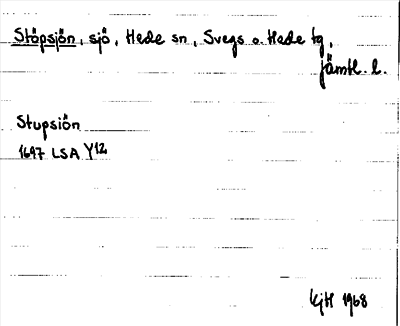 Ståpsjön, sjö, Hede sn, Svegs o. Hede tg,
Jämtl. l.
Stupsiön
1697 LSA Y12
KjH 1968